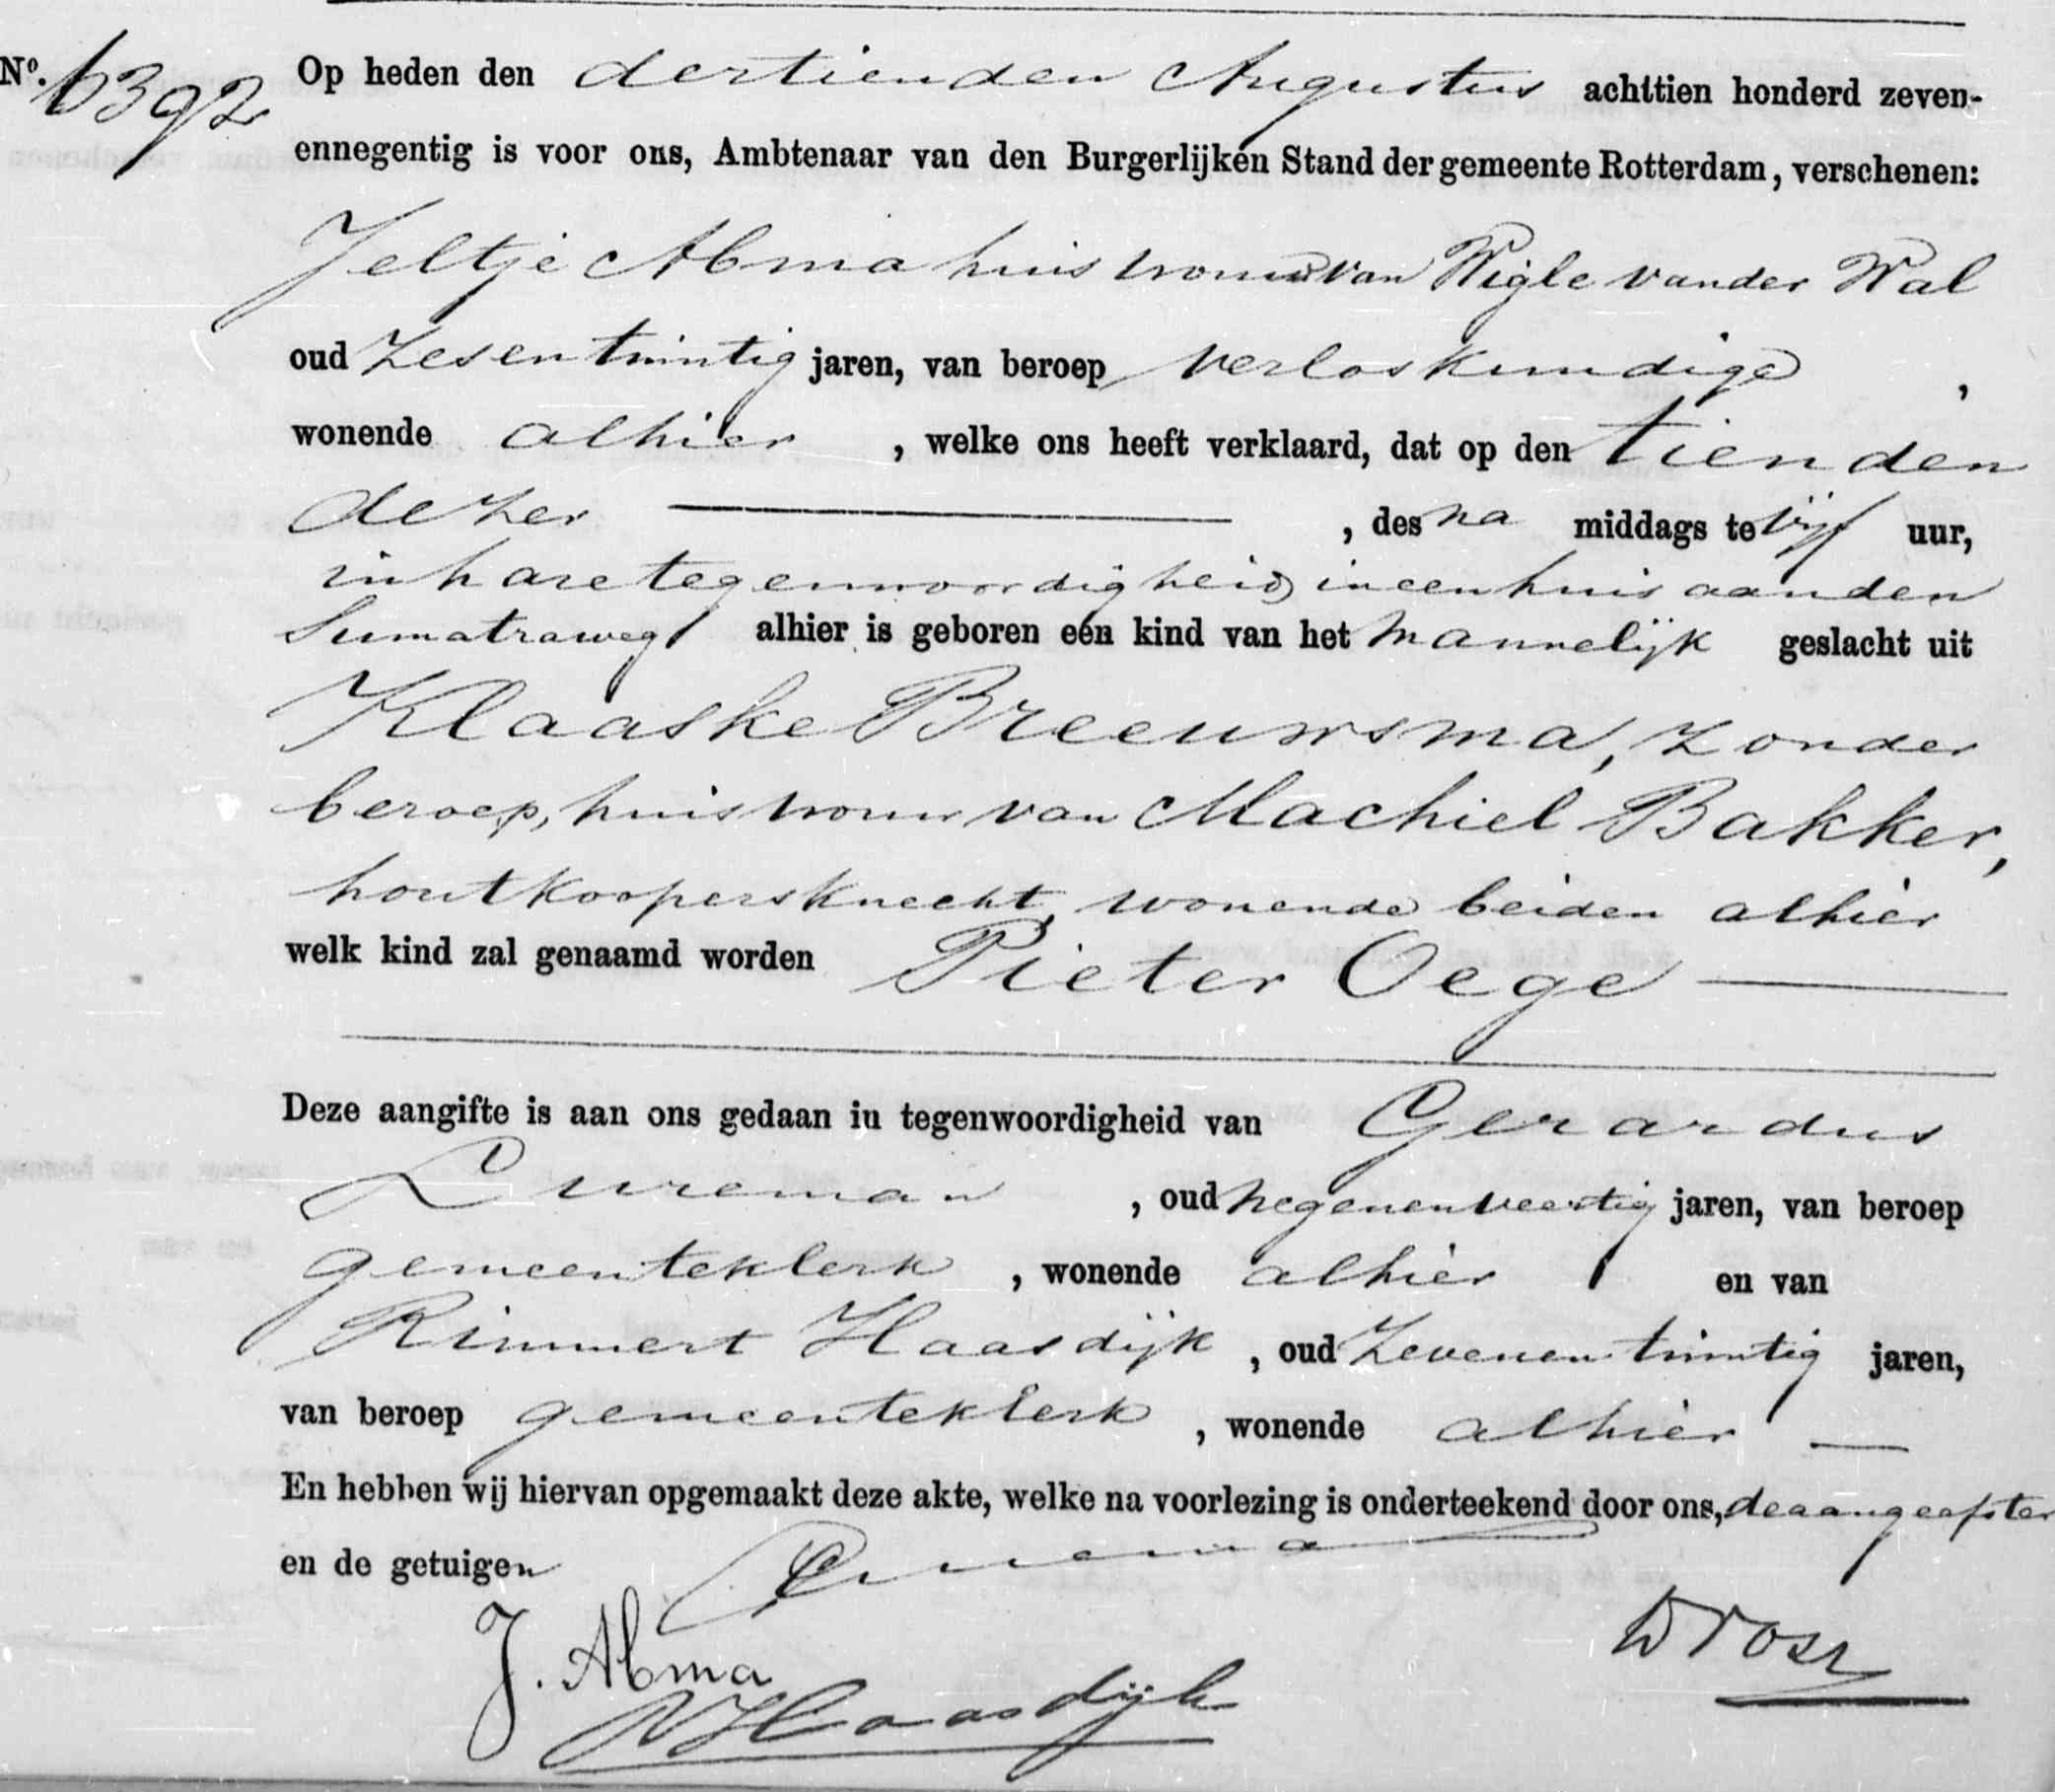 No. 6392 Op heden den dertienden Augustus achttien honderd zeven-
ennegentig is voor ons, Ambtenaar van den Burgerlijken Stand der gemeente Rotterdam, verschenen:
Jeltje Abma huisvrouw van Wigle van der Wal
oud zesentwintig jaren, van beroep verloskundige,
wonende alhier, welke ons heeft verklaard, dat op den tienden
dezer, des na middags te vijf uur,
in hare tegenwoordigheid in een huis aan den
Sumatraweg alhier is geboren een kind van het mannelijk geslacht uit
Klaaske Breeuwsma, zonder
beroep, huisvrouw van Machiel Bakker,
houtkoopersknecht, wonende beiden alhier
welk kind zal genaamd worden Pieter Oege
Deze aangifte is aan ons gedaan in tegenwoordigheid van Gerardus
Lureman, oud negenenveertig jaren, van beroep
gemeenteklerk, wonende alhier en van
Rimmert Haasdijk, oud zevenentwintig jaren,
van beroep gemeenteklerk, wonende alhier
En hebben wij hiervan opgemaakt deze akte, welke na voorlezing is onderteekend door ons, de aangeefster
en de getuigen
J. Abma
RHaasdijk